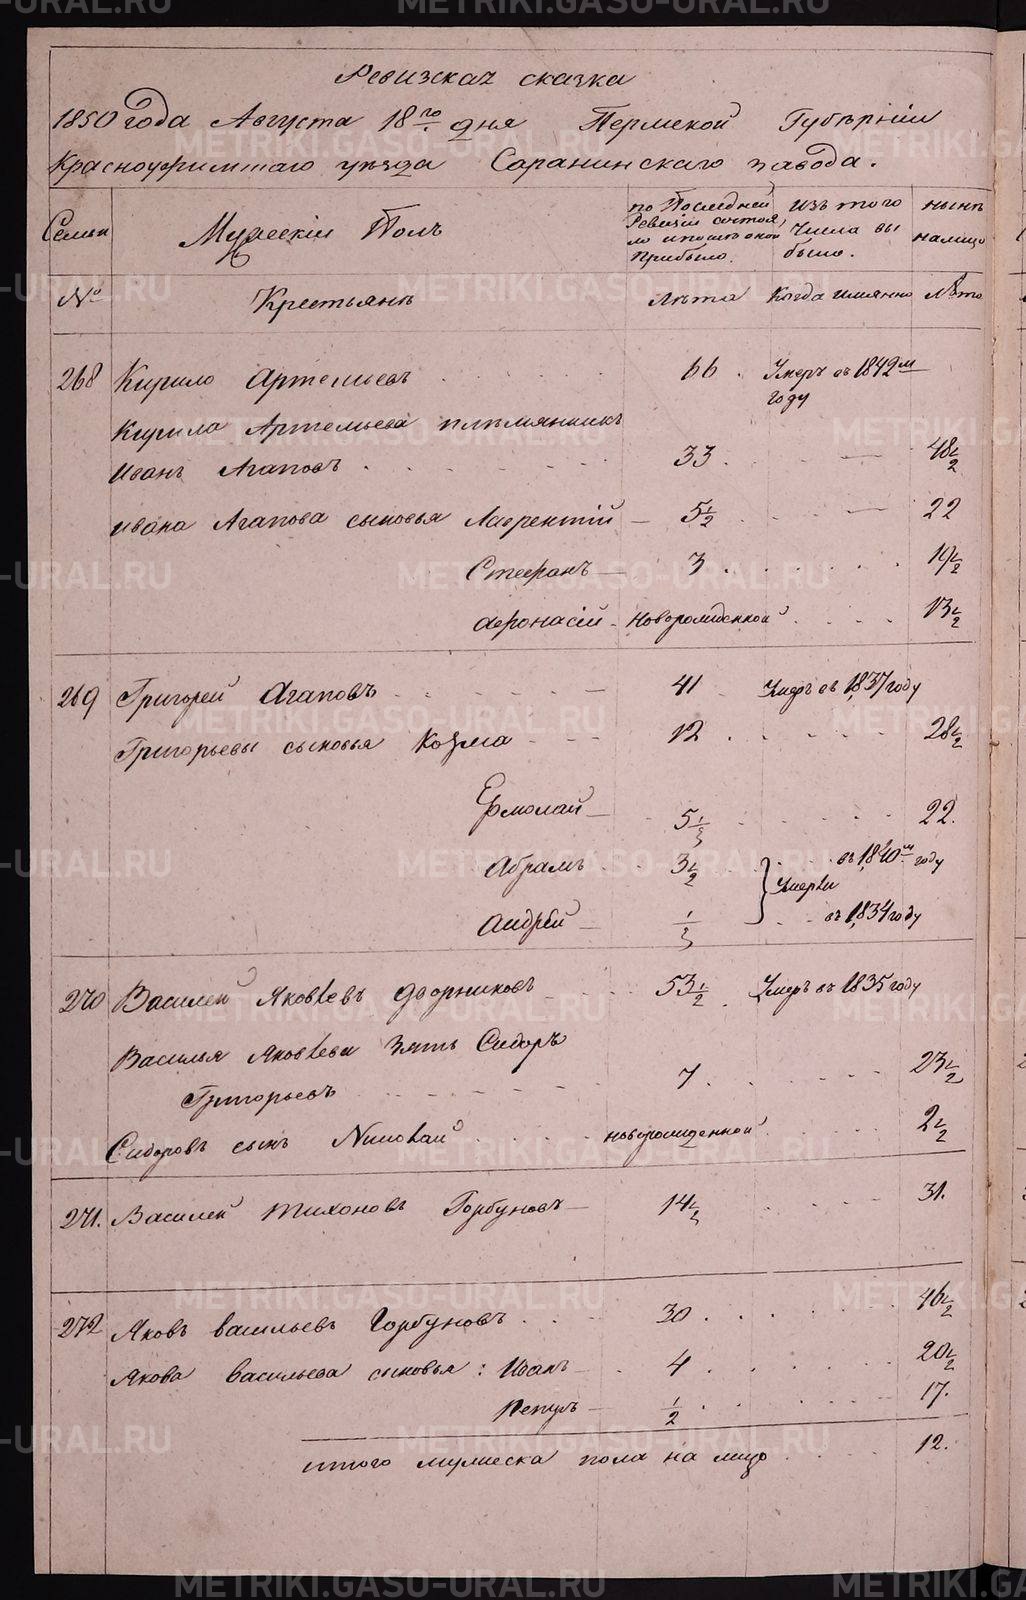 Ревизская сказка
1850 года Августа 18го дня Пермской Губѣрніи
Красноуфимскаго уѣзда Саранинскаго завода.
Семьи
Мужескій Полъ
по Последней Ревизіи состоя
ло и после оной прибыло.
изъ того числа вы
было.
нынѣ
налицо
№
Крестьянѣ
Лѣта
Когда имянно
Лѣто
268 Кирило Артемьевъ 66. Умеръ въ 1842м году
Кирила Артемьева племянникъ
Иванъ Агаповъ 33. 48½
Ивана Агапова сыновья Лаврентій 5½ 22
Стефанъ 3 19½
Афонасій новорожденной 13½
269 Григорей Агаповъ 41 Умеръ въ 1837 году
Григорьевы сыновья Козма 12 28½
Ермолай 5½ 22.
Абрамъ 3½ въ 1840м году
Умерли
Андрей ½ въ 1834 году
270 Василей Яковлевъ Дворниковъ 53½ Умеръ въ 1835 году
Василья Яковлева Зять Сидоръ
Григорьевъ 7. 23½
Сидоровъ сынъ Николай новорожденной 2½
271. Василей Тихоновъ Горбуновъ 14½ 31.
272 Яковъ Васильевъ Горбуновъ 30 46½
Якова Васильева сыновья: Иванъ 4 20½
½ 17.
итого мужеска пола на лицо 12.
METRIKI.GASO-URAL.RU